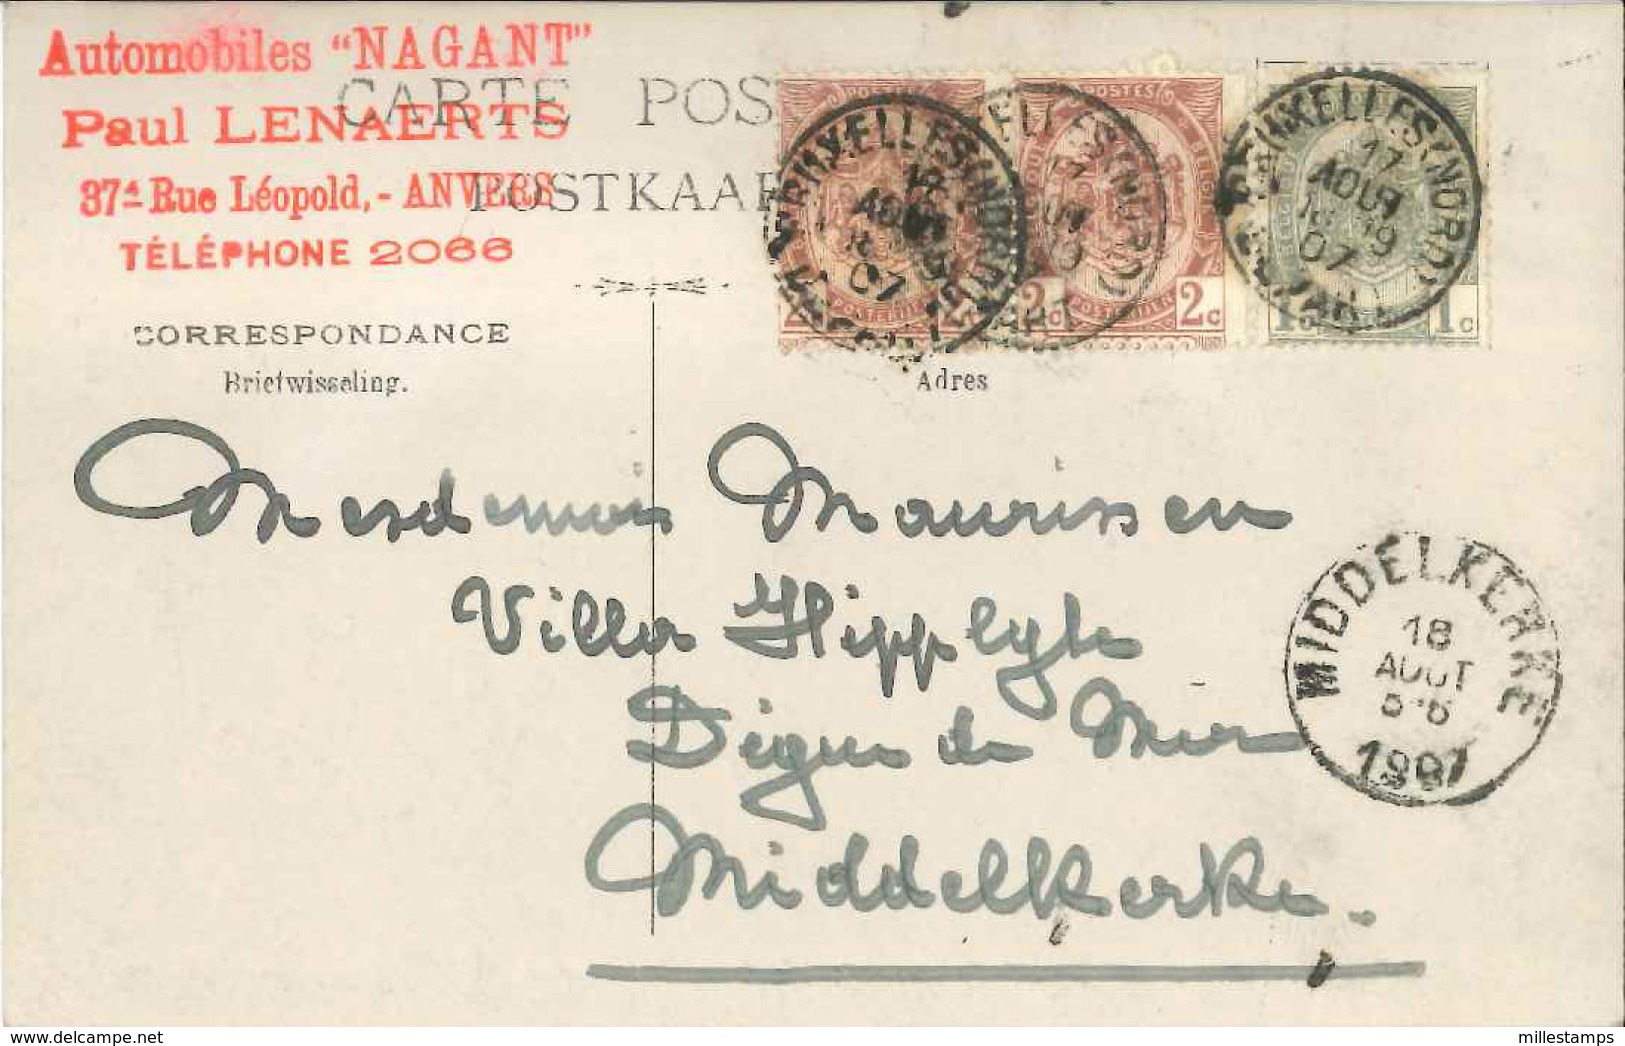 Automobiles "NAGANT"
Paul LENAERTS
37A Rue Léopold, - ANVERS
TÉLÉPHONE 2066
CARTE POS
POSTKAAR
CORRESPONDANCE
Briefwisseling.
Adres
POSTES
POSTERIJEN
2c
POSTES
POSTERIJEN
2c 2c
1c 1c
BRUXELLES (NORD)
17
AOUT
07
BRUXELLES (NORD)
17
AOUT
18-19
07
DÉPART
MIDDELKERKE
18
AOUT
1907
Mesdemois Maurissen
Villa Hippolyte
Digue de Mer
Middelkerke.
www.delcampe.net
millestamps